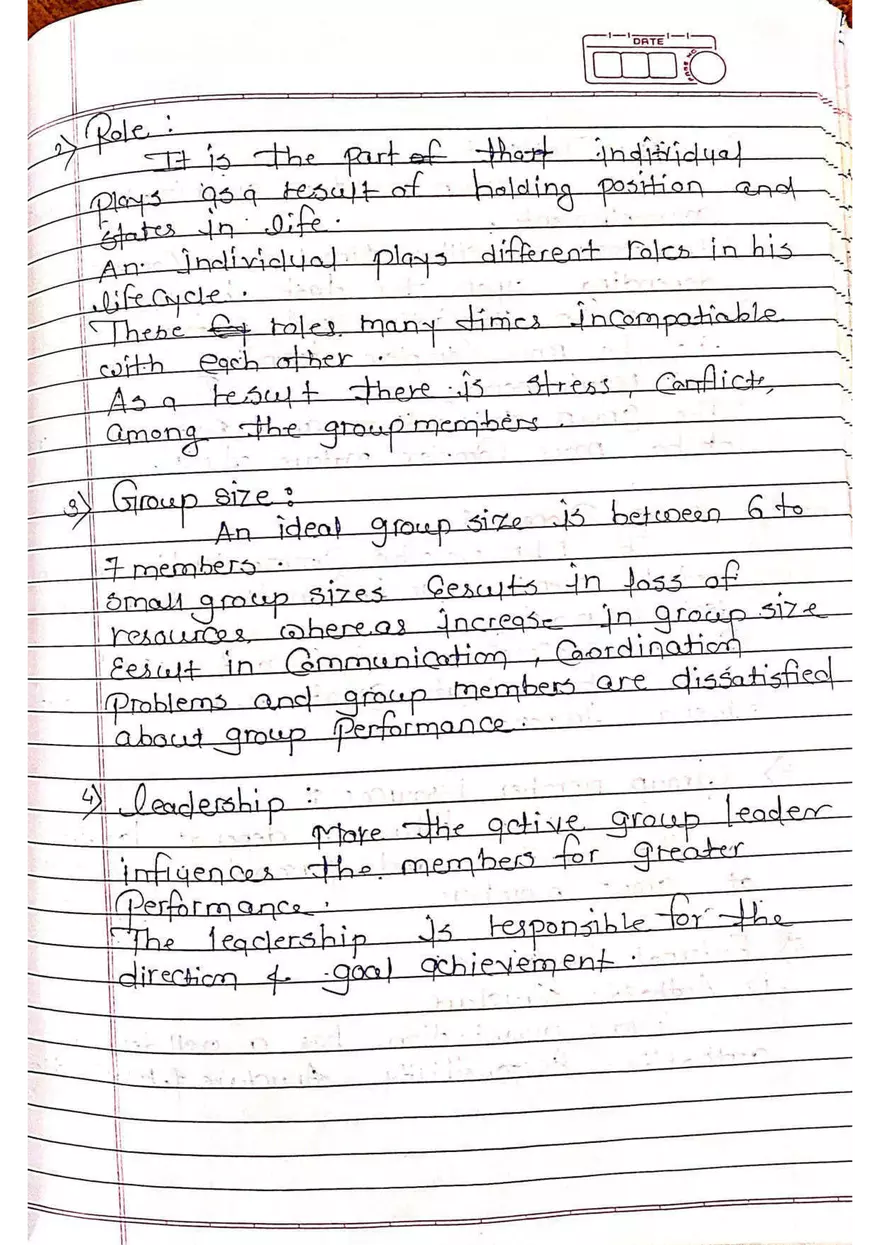 DATE
2) Role :
It is the part of that individual
plays as a result of holding position and
states in life.
An individual plays different roles in his
life cycle.
These roles many times incompatiable
with each other.
As a result there is stress, Conflicts,
among the group members.
3) Group size :
An ideal group size is between 6 to
7 members.
Small group sizes Results in loss of
resources whereas increase in group size
Result in Communication, Coordination
Problems and group members are dissatisfied
about group Performance.
4) leadership :
More the active group leader
influences the members for greater
Performance.
The leadership is responsible for the
direction & goal achievement.